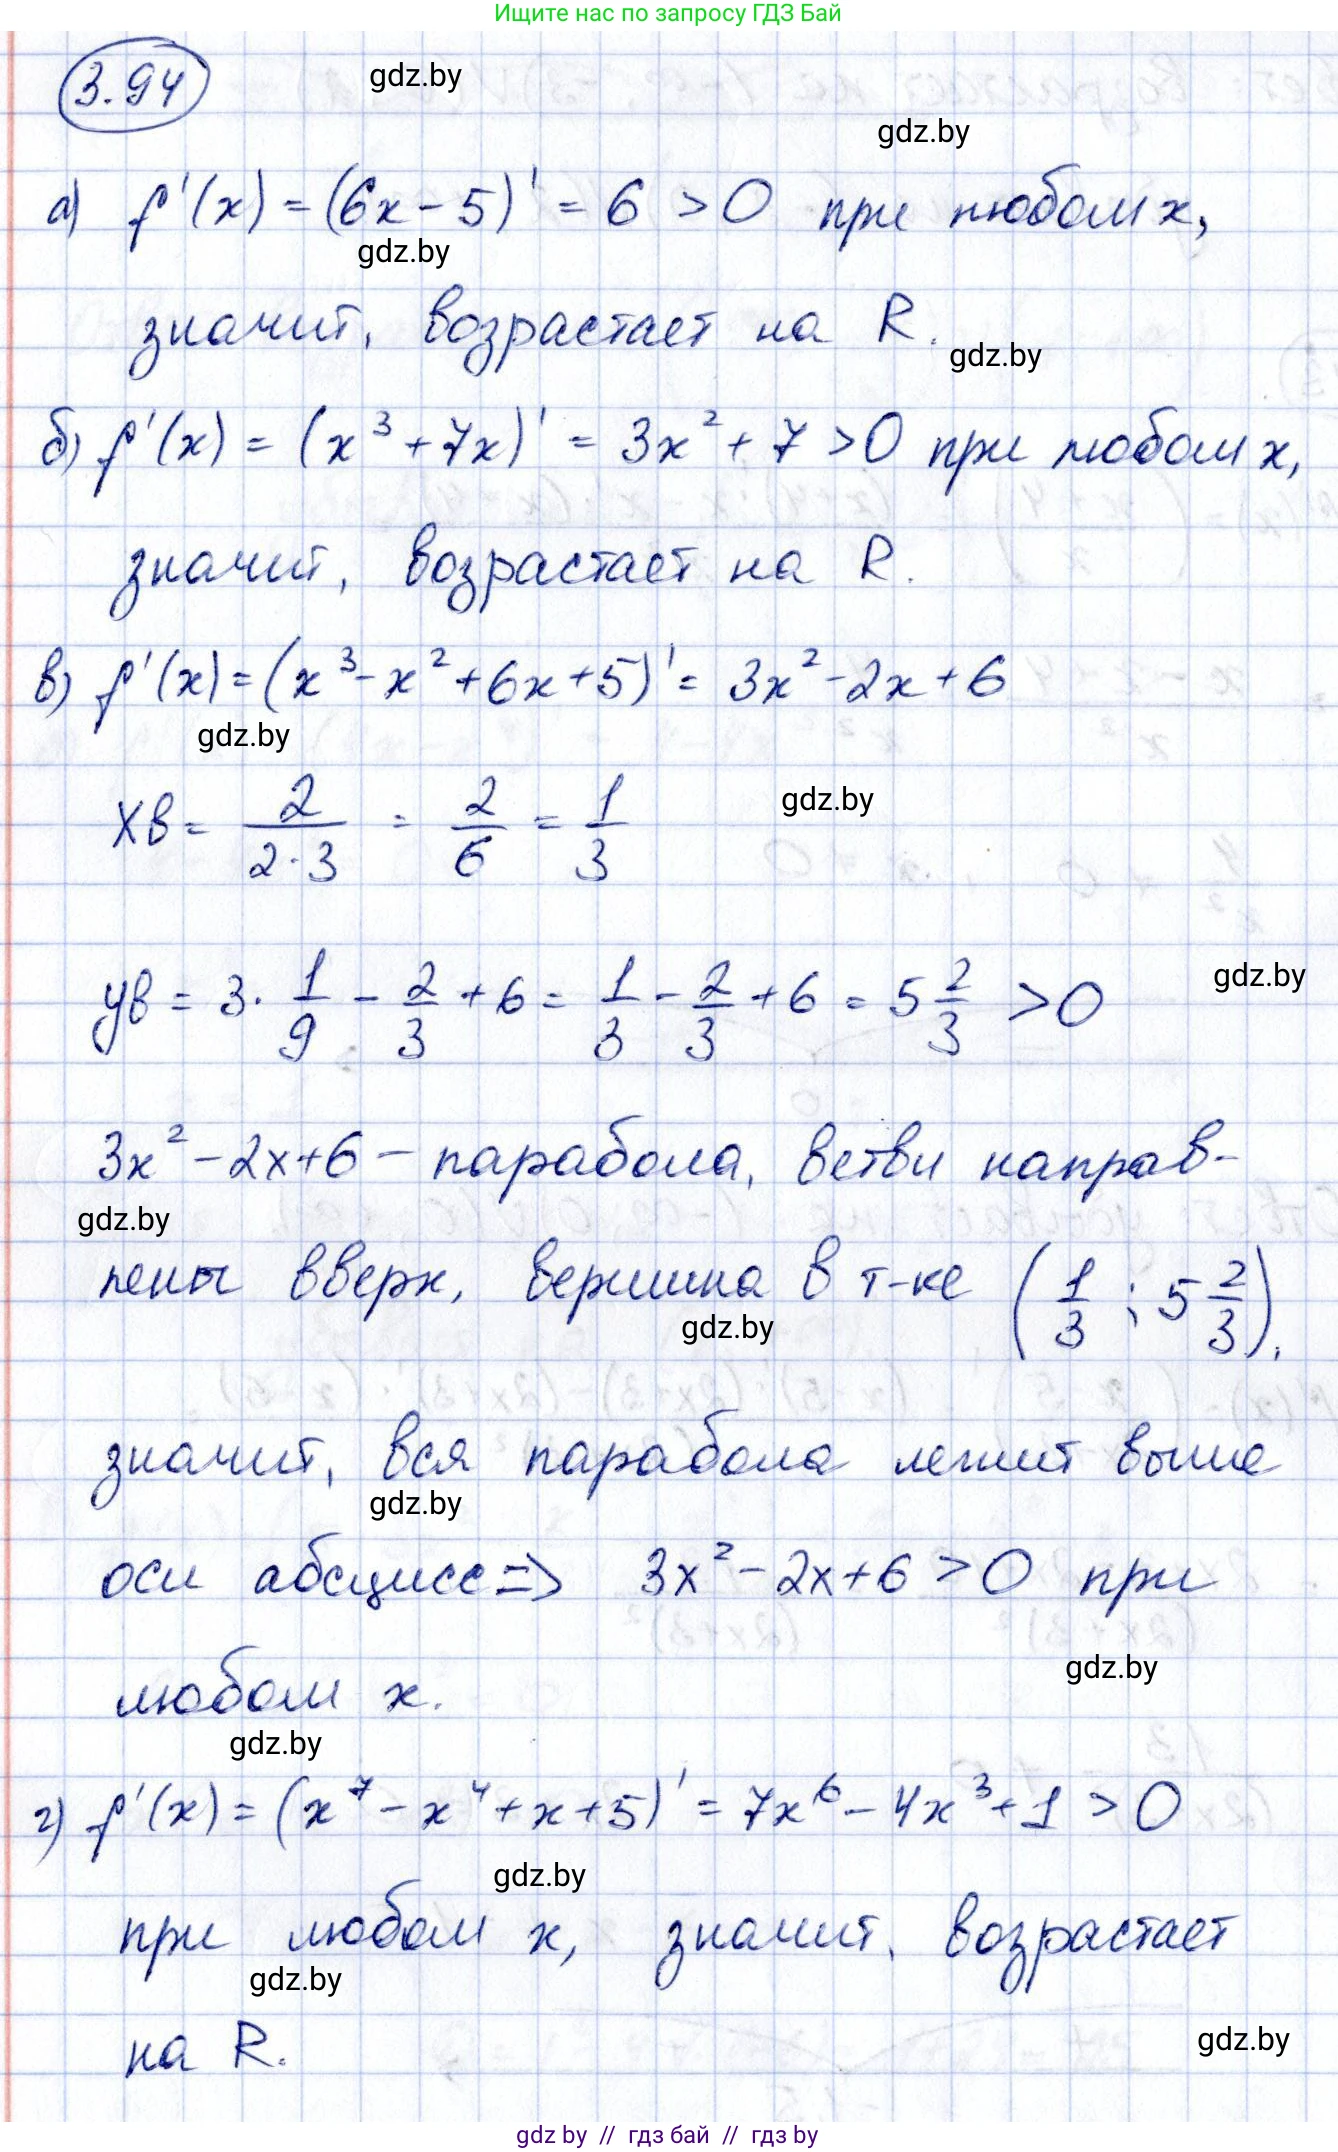 Ищите нас по запросу ГДЗ Бай
3.94
gdz.by
gdz.by
а) f'(x) = (6x - 5)' = 6 > 0 при любом x,
gdz.by
значит, возрастает на R.
gdz.by
б) f'(x) = (x³ + 7x)' = 3x² + 7 > 0 при любом x,
значит, возрастает на R.
в) f'(x) = (x³ - x² + 6x + 5)' = 3x² - 2x + 6
gdz.by
xв = 2/(2·3) = 2/6 = 1/3
gdz.by
yв = 3·1/9 - 2/3 + 6 = 1/3 - 2/3 + 6 = 5 2/3 > 0
gdz.by
3x² - 2x + 6 - парабола, ветви направ-
gdz.by
лены вверх, вершина в т-ке (1/3; 5 2/3),
gdz.by
значит, вся парабола лежит выше
gdz.by
оси абсцисс => 3x² - 2x + 6 > 0 при
gdz.by
любом x.
gdz.by
г) f'(x) = (x⁷ - x⁴ + x + 5)' = 7x⁶ - 4x³ + 1 > 0
gdz.by
при любом x, значит, возрастает
gdz.by
на R.
gdz.by
gdz by // гдз бай // gdz by